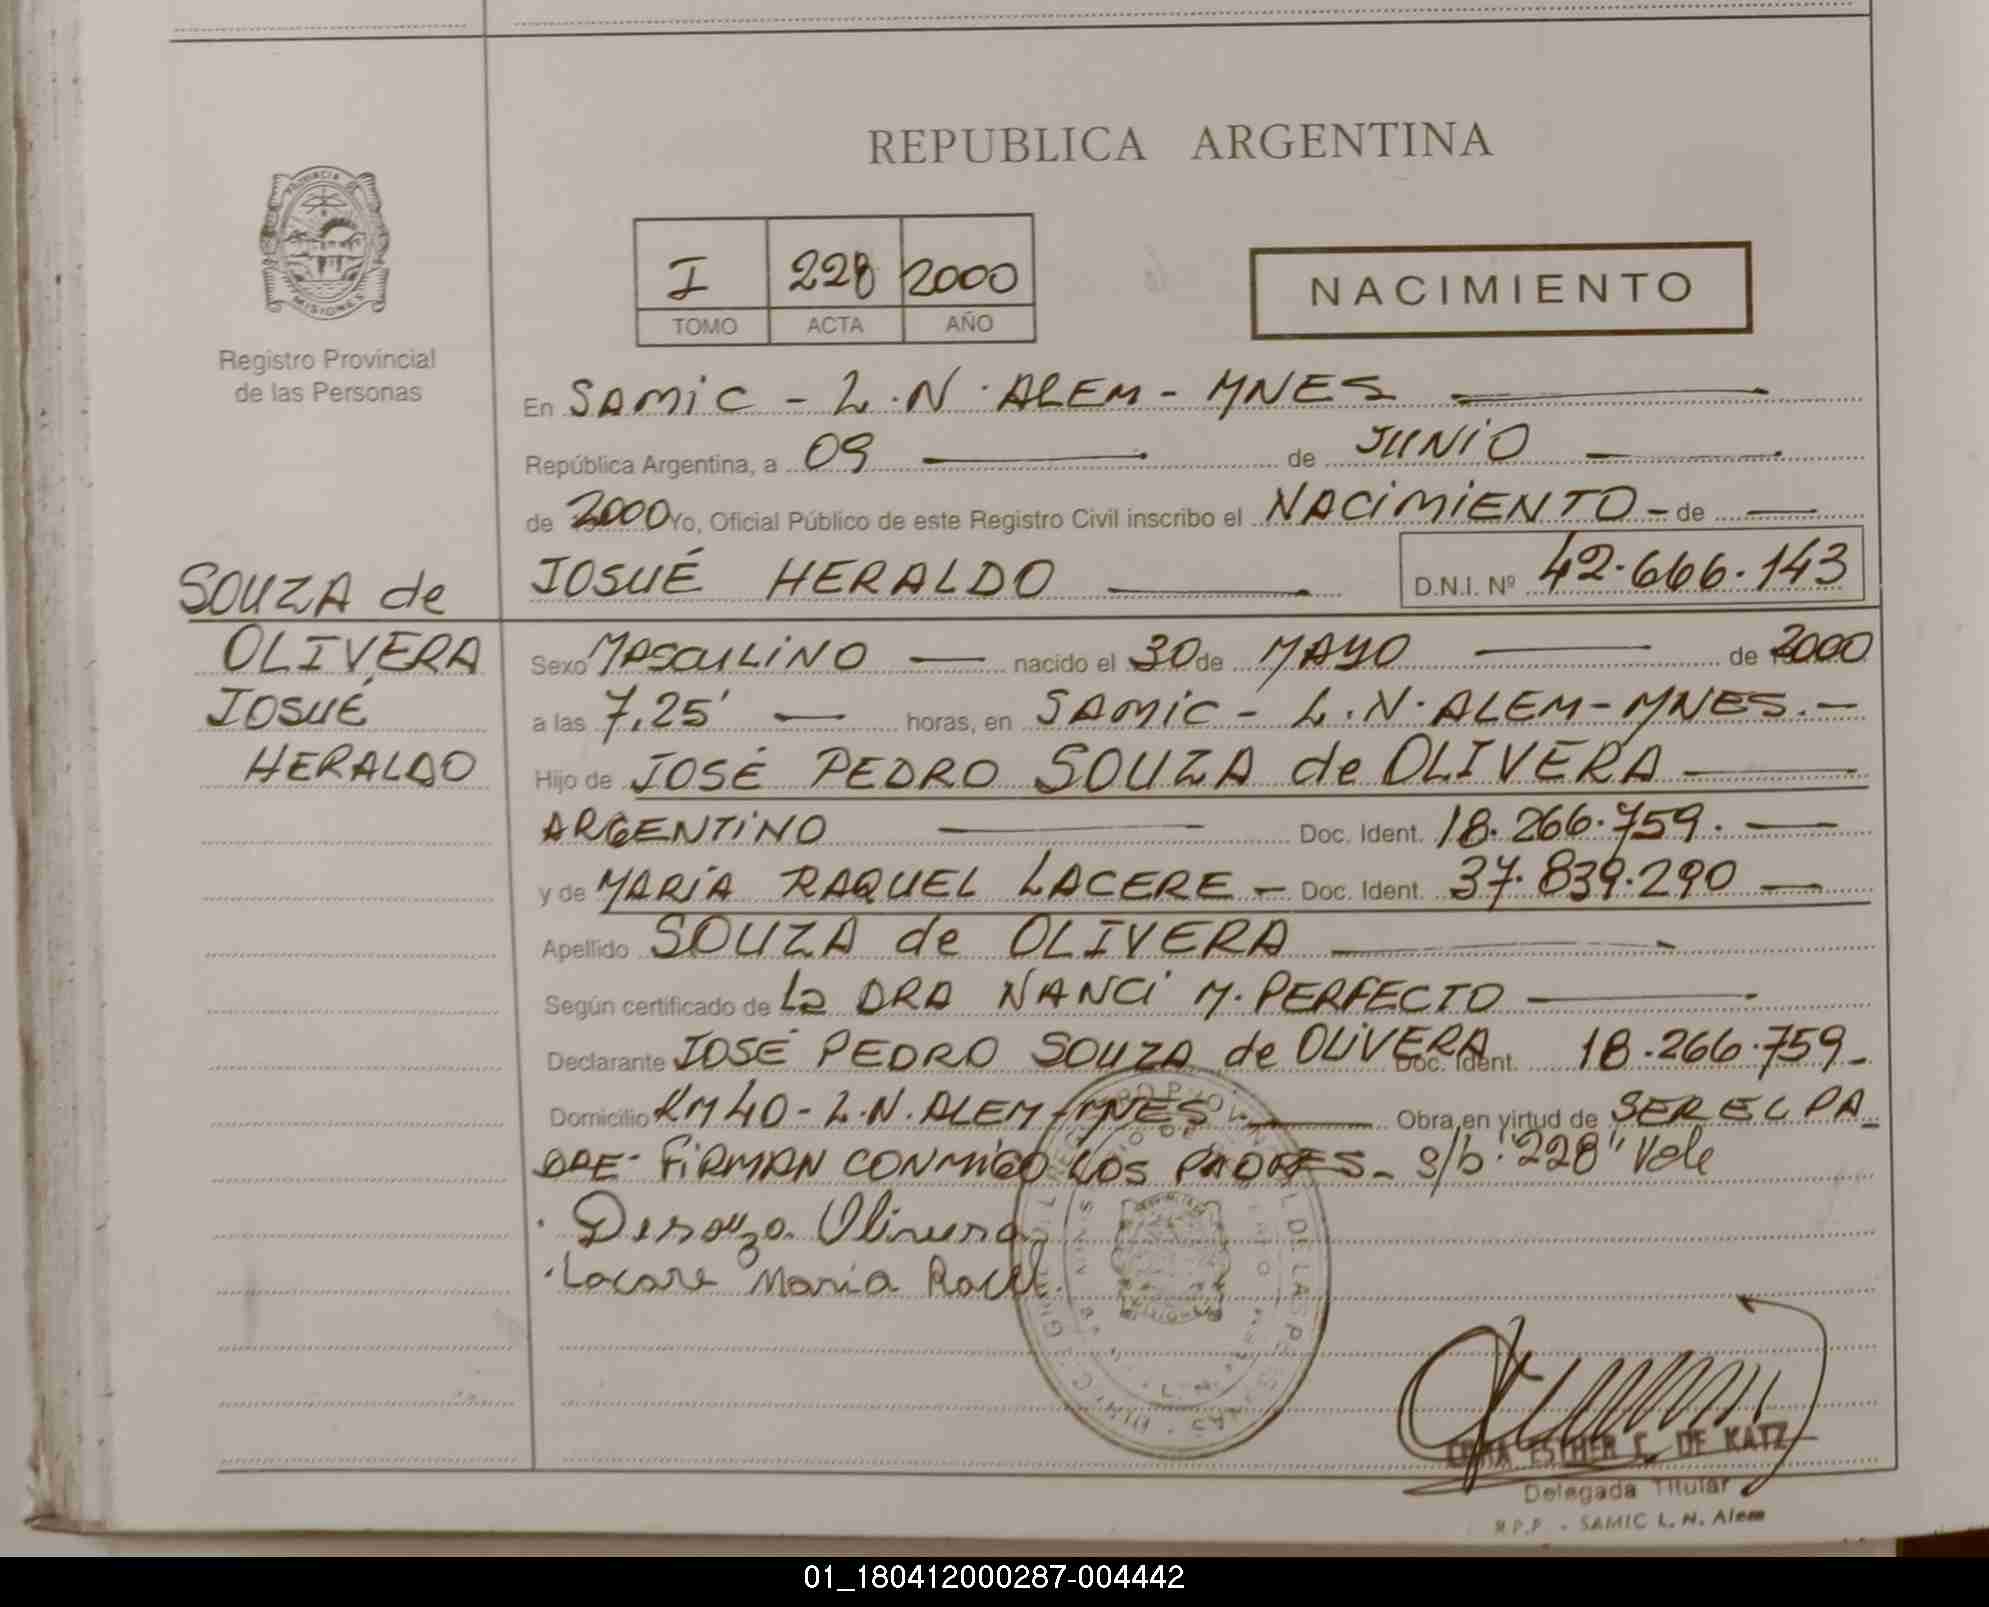 REPUBLICA ARGENTINA
PROVINCIA DE MISIONES
Registro Provincial
de las Personas
I 228 2000
TOMO ACTA AÑO
NACIMIENTO
En SAMIC - L.N. ALEM - MNES
República Argentina, a 09 de JUNIO
de 2000 Yo, Oficial Público de este Registro Civil inscribo el NACIMIENTO - de
JOSUÉ HERALDO D.N.I. Nº 42.666.143
SOUZA de
OLIVERA
JOSUÉ
HERALDO
Sexo MASCULINO nacido el 30 de MAYO de 2000
a las 7,25' horas, en SAMIC - L.N. ALEM - MNES.-
Hijo de JOSÉ PEDRO SOUZA de OLIVERA
ARGENTINO Doc. Ident. 18.266.759.
y de MARÍA RAQUEL LACERE - Doc. Ident. 37.839.290
Apellido SOUZA de OLIVERA
Según certificado de La DRA NANCI M. PERFECTO
Declarante JOSÉ PEDRO SOUZA de OLIVERA Doc. Ident. 18.266.759-
Domicilio KM 40 - L.N. ALEM - MNES Obra en virtud de SER EL PA
DRE- FIRMAN CONMIGO LOS PADRES- s/b: "228" Vale
Olivera
María
ESTHER DE KATZ
Delegada Titular
R.P.P - SAMIC L. N. Alem
01_180412000287-004442